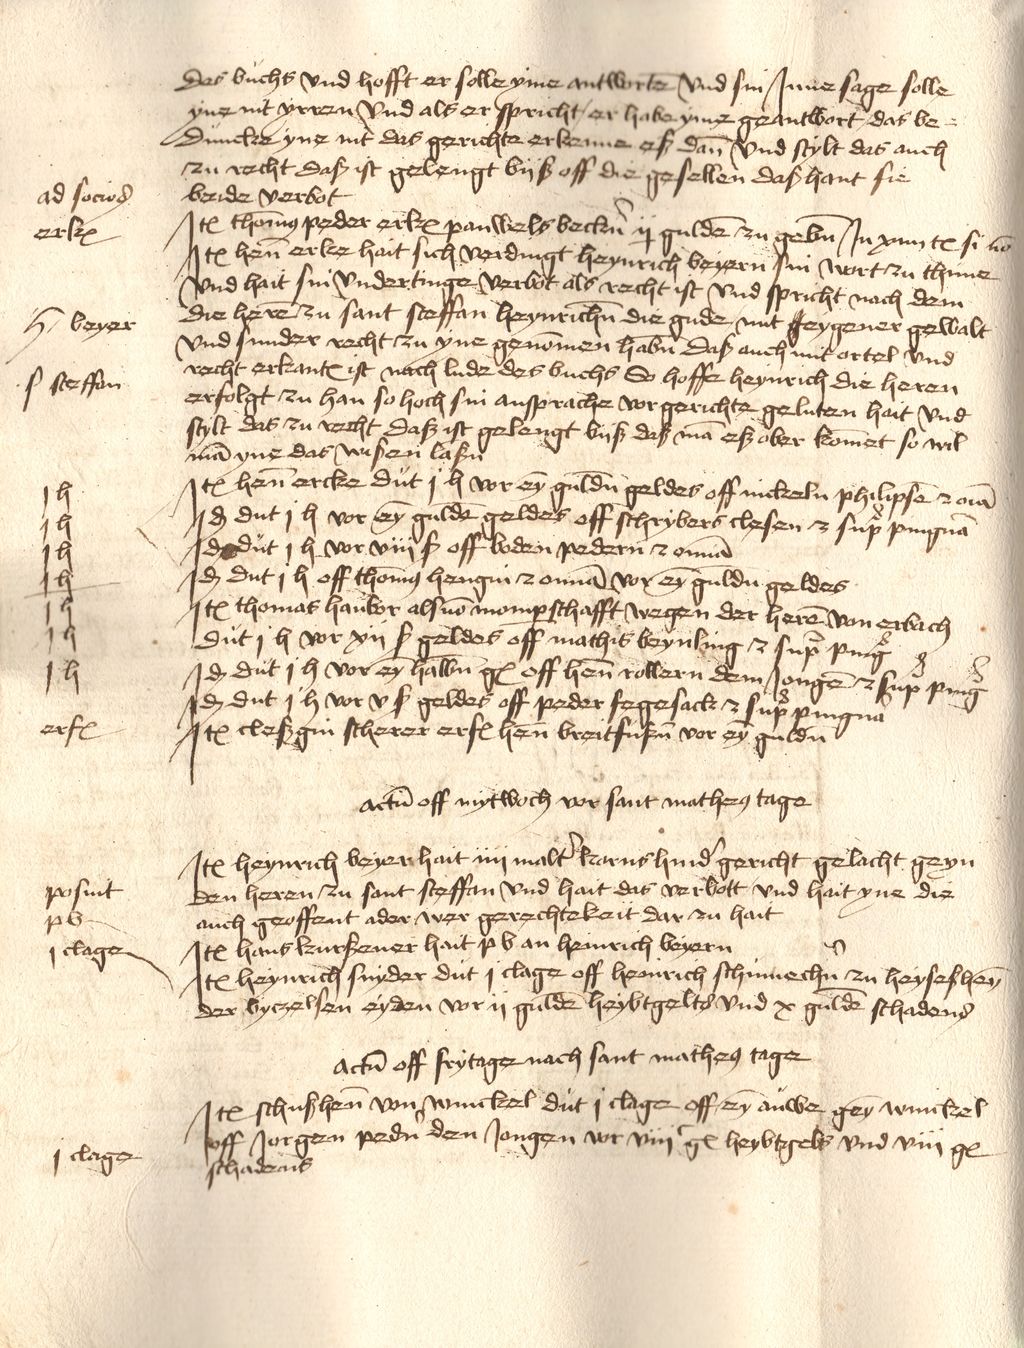 das buchs vnd hofft er solle yme antworte vnd sin Inne sage solle
yne nit yrren vnd als er spricht er habe yme geantwort das be-
duncke yne nit das gerichte erkenne eß dan vnd stylt das auch
zu recht daß ist gelengt biß off die gesellen daß hant sie
ad socios
beide verbot
erkt Itt thoms peder erkt pauwels beckn ij gulde zu gebn In xiiii t si no
Itt hen erke hait sich verdingt heynrich beyern sin wort zu thune
vnd hait sin vndertinge verbot als recht ist vnd spricht nach dem
h beyer die here zu sant steffan heynrichn die gude mit eygener gewalt
vnd sunder recht zu yne genomen habn daß auch mit ortel vnd
s steffan recht erkant ist nach lude des buchs So hoffe heynrich die heren
erfolgt zu han so hoch sin ansprache vor gerichte geluten hait vnd
stylt das zu recht daß ist gelengt biß daß ma eß ober komet so wil
ma yne das wisen laßn
j h Itt hen ercke dut j h vor ey guldn geldes off nickeln philipse z oia
j h Id dut j h vor ey gulde geldes off schrybers clesen z sup pingna
j h Id dut j h vor viii ß off boden pedern z omia
j h Id dut j h off thoms hengin z omia vor ey guldn geldes
j h Itt thomas hanbor als vo mompschafft wegen der here von erbach
j h dut j h vor xij ß geldes off mathis beynling z sup ping
j h Id dut j h vor ey halbn gl off hen rollern dem Jonge z sup ping
Id dut j h vor v ß geldes off peder fegesack z sup pingna
erft Itt cleßgin scherer erft hen breitfußn vor ey guldn
Actu off mytwoch vor sant matheus tage
Itt heynrich beyer hait iiii malt korns hinder gericht gelacht geyn
posuit den heren zu sant steffan vnd hait das verbott vnd hait yne die
pb auch geoffent ader wer gerechtekeit dar zu hait
j clage Itt hans kurßener hait pb an heinrich beyern
Itt heynrich snyder dut j clage off heinrich schumechn zu heyseßhen
der byczelsen eyden vor ij gulde heybtgelts vnd x gulde schadens
Actu off frytage nach sant matheus tage
Itt schußhen von winckel dut j clage off ey auwe gey winckel
j clage off Jorgen pedn den Jongen vor viii gl heybtgelts vnd viii gl
schadens